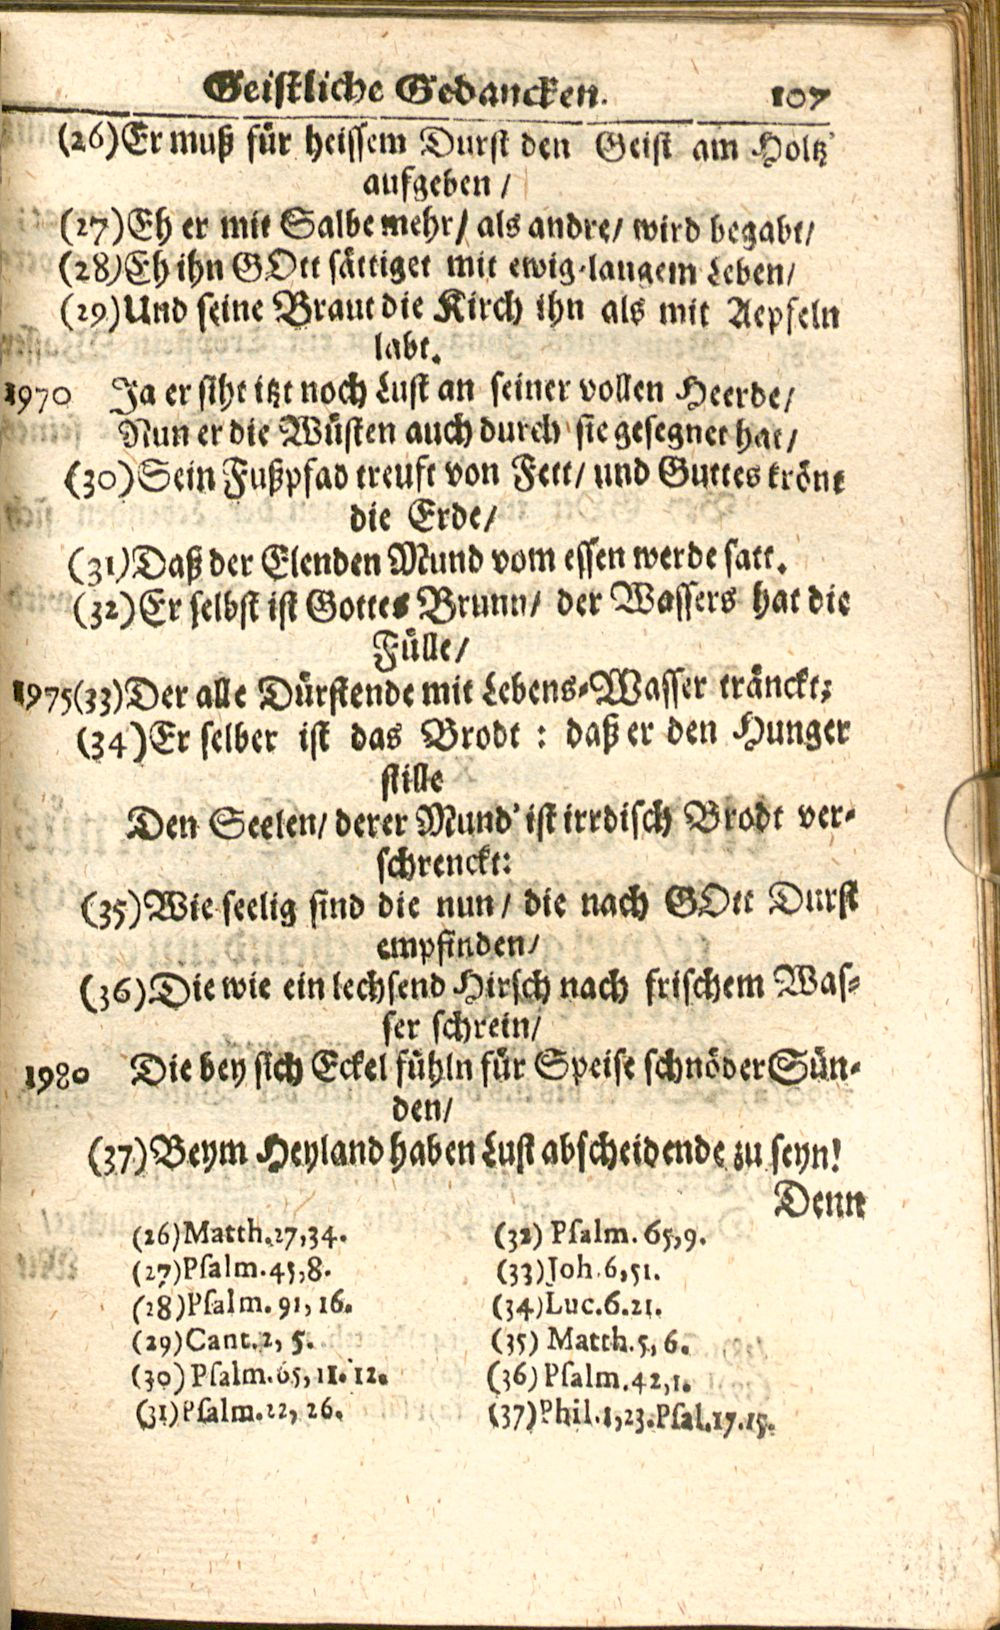 Geistliche Gedancken. 107
(26)Er muß für heissem Durst den Geist am Holtz'
aufgeben /
(27)Eh er mit Salbe mehr/ als andre/ wird begabt/
(28)Eh ihn GOtt sättiget mit ewig-langem Leben/
(29)Und seine Braut die Kirch ihn als mit Aepfeln
labt.
1970 Ja er siht itzt noch Lust an seiner vollen Heerde/
Nun er die Wüsten auch durch sie gesegnet hat/
(30)Sein Fußpfad treuft von Fett/ und Guttes krönt
die Erde/
(31)Daß der Elenden Mund vom essen werde satt.
(32)Er selbst ist Gottes Brunn/ der Wassers hat die
Fülle/
1975(33)Der alle Dürstende mit Lebens-Wasser tränckt;
(34)Er selber ist das Brodt : daß er den Hunger
stille
Den Seelen/ derer Mund' ist irrdisch Brodt ver-
schrenckt:
(35)Wie seelig sind die nun/ die nach GOtt Durst
empfinden/
(36)Die wie ein lechsend Hirsch nach frischem Was-
ser schrein/
1980 Die bey sich Eckel fühln für Speise schnöder Sün-
den/
(37)Beym Heyland haben Lust abscheidende zu seyn!
Denn
(26)Matth.27,34.
(27)Psalm.45,8.
(28)Psalm. 91, 16.
(29)Cant.2, 5.
(30) Psalm.65, 11. 12.
(31)Psalm.22, 26.
(32) Psalm. 65,9.
(33)Joh.6,51.
(34)Luc.6.21.
(35) Matth.5, 6.
(36) Psalm.42,1.
(37)Phil.1,23.Psal.17.15.